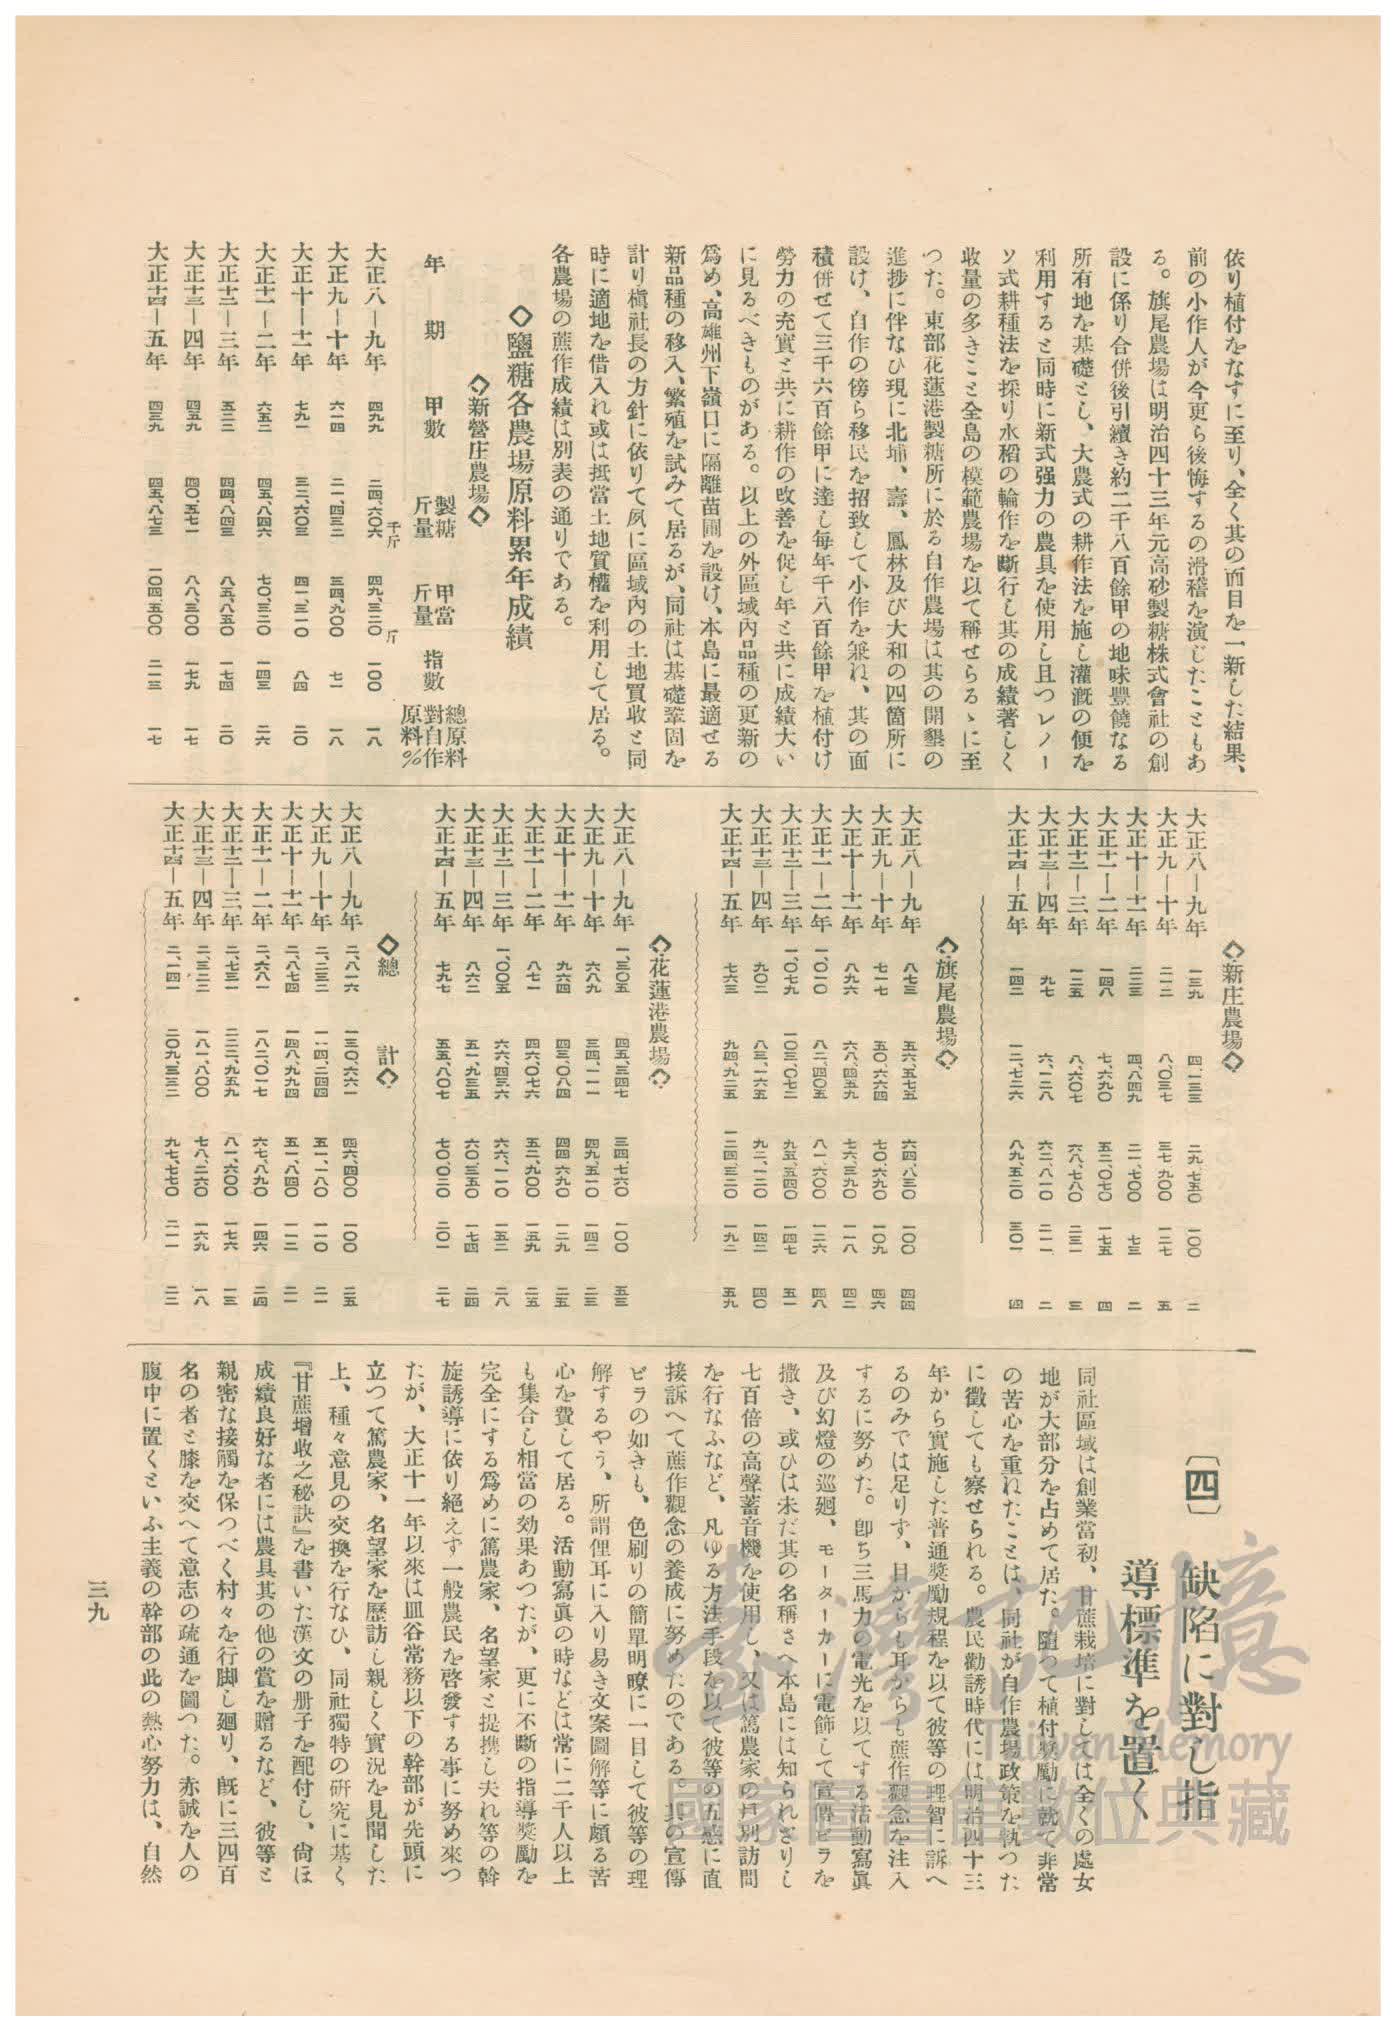 依り植付をなすに至り、全く其の面目を一新した結果、
前の小作人が今更ら後悔するの滑稽を演じたこともあ
る。旗尾農場は明治四十三年元高砂製糖株式會社の創
設に係り合併後引續き約二千八百餘甲の地味豐饒なる
所有地を基礎とし、大農式の耕作法を施し灌漑の便を
利用すると同時に新式强力の農具を使用し且つレノー
ソ式耕種法を採り水稻の輪作を斷行し其の成績著しく
收量の多きこと全島の模範農場を以て稱せらるゝに至
つた。東部花蓮港製糖所に於る自作農場は其の開墾の
進捗に伴なひ現に北埔、壽、鳳林及び大和の四箇所に
設け、自作の傍ら移民を招致して小作を兼ね、其の面
積併せて三千六百餘甲に達し每年千八百餘甲を植付け
勞力の充實と共に耕作の改善を促し年と共に成績大い
に見るべきものがある。以上の外區域內品種の更新の
爲め、高雄州下嶺口に隔離苗圃を設け、本島に最適せる
新品種の移入、繁殖を試みて居るが、同社は基礎鞏固を
計り槇社長の方針に依りて夙に區域內の土地買收と同
時に適地を借入れ或は抵當土地質權を利用して居る。
各農場の蔗作成績は別表の通りである。
◇鹽糖各農場原料累年成績
◇新營庄農場◇
年期 甲數 製糖斤量 甲當斤量 指數 總原料對自作原料%
千斤 斤
大正八―九年 四九九 二四、六〇六 四九、三二〇 一〇〇 一八
大正九―十年 六一四 二一、四三二 三四、九〇〇 七一 一八
大正十―十一年 七九一 三二、六〇三 四一、三一〇 八四 二〇
大正十一―二年 六五二 四五、八四六 七〇、三二〇 一四三 二六
大正十二―三年 五二二 四四、八四三 八五、八五〇 一七四 二〇
大正十三―四年 四五九 四〇、五七一 八八、三〇〇 一七九 一七
大正十四―五年 四三九 四五、八七三 一〇四、五〇〇 二一三 一七
◇新庄農場◇
大正八―九年 一三九 四、一三三 二九、七五〇 一〇〇 二
大正九―十年 二一二 八、〇三七 三七、九〇〇 一二七 五
大正十―十一年 二二三 四、八四九 二一、七〇〇 七三 二
大正十一―二年 一四八 七、六九〇 五二、〇七〇 一七五 四
大正十二―三年 一二五 八、六〇七 六八、七八〇 二三一 三
大正十三―四年 九七 六、一二八 六二、八一〇 二一一 二
大正十四―五年 一四二 一二、七二六 八九、五二〇 三〇一 四
◇旗尾農場◇
大正八―九年 八七三 五六、五七五 六四、八三〇 一〇〇 四四
大正九―十年 七一七 五〇、六六四 七〇、六九〇 一〇九 四六
大正十―十一年 八九六 六八、四五九 七六、三九〇 一一八 四二
大正十一―二年 一、〇一〇 八二、四〇五 八一、六〇〇 一二六 四八
大正十二―三年 一、〇七九 一〇三、〇七二 九五、五四〇 一四七 五一
大正十三―四年 九〇二 八三、一六五 九二、一二〇 一四二 四〇
大正十四―五年 七六三 九四、九二五 一二四、三二〇 一九二 五九
◇花蓮港農場◇
大正八―九年 一、三〇五 四五、三四七 三四、七六〇 一〇〇 五三
大正九―十年 六八九 三四、一一一 四九、五一〇 一四二 二三
大正十―十一年 九六四 四三、〇八四 四四、六九〇 一二九 二五
大正十一―二年 八七一 四六、〇七六 五二、九〇〇 一五九 二五
大正十二―三年 一、〇〇五 六六、四三六 六六、一一〇 一五二 二八
大正十三―四年 八六二 五一、九三五 六〇、三五〇 一七四 二四
大正十四―五年 七九七 五五、八〇七 七〇、〇二〇 二〇一 二七
◇總計◇
大正八―九年 二、八一六 一三〇、六六一 四六、四〇〇 一〇〇 二五
大正九―十年 二、二三二 一一四、二四四 五一、一八〇 一一〇 二一
大正十―十一年 二、八七四 一四八、九九四 五一、八四〇 一一二 二一
大正十一―二年 二、六八一 一八二、〇一七 六七、八九〇 一四六 二四
大正十二―三年 二、七三一 二二二、九五九 八一、六〇〇 一七六 一三
大正十三―四年 二、三二二 一八一、八〇〇 七八、二六〇 一六九 一八
大正十四―五年 二、一四一 二〇九、三三二 九七、七七〇 二一一 二二
〔四〕 缺陷に對し指
導標準を置く
同社區域は創業當初、甘蔗栽培に對しては全くの處女
地が大部分を占めて居た。隨つて植付奬勵に就て非常
の苦心を重ねたことは、同社が自作農場政策を執つた
に徵しても察せられる。農民勸誘時代には明治四十三
年から實施した普通奬勵規程を以て彼等の理智に訴へ
るのみでは足りず、目からも耳からも蔗作觀念を注入
するに努めた。卽ち三馬力の電光を以てする活動寫眞
及び幻燈の巡廻、モーターカーに電飾して宣傳ビラを
撒き、或ひは未だ其の名稱さへ本島には知られざりし
七百倍の高聲蓄音機を使用し、又は篤農家の戶別訪問
を行なふなど、凡ゆる方法手段を以て彼等の五感に直
接訴へて蔗作觀念の養成に努めたのである。其の宣傳
ビラの如きも、色刷りの簡單明瞭に一目して彼等の理
解するやう、所謂俚耳に入り易き文案圖解等に頗る苦
心を費して居る。活動寫眞の時などは常に二千人以上
も集合し相當の効果あつたが、更に不斷の指導奬勵を
完全にする爲めに篤農家、名望家と提携し夫れ等の斡
旋誘導に依り絕えず一般農民を啓發する事に努め來つ
たが、大正十一年以來は皿谷常務以下の幹部が先頭に
立つて篤農家、名望家を歷訪し親しく實況を見聞した
上、種々意見の交換を行なひ、同社獨特の硏究に基く
『甘蔗增收之秘訣』を書いた漢文の册子を配付し、尙ほ
成績良好な者には農具其の他の賞を贈るなど、彼等と
親密な接觸を保つべく村々を行脚し廻り、旣に三四百
名の者と膝を交へて意志の疏通を圖つた。赤誠を人の
腹中に置くといふ主義の幹部の此の熱心努力は、自然
三九
臺灣記憶
Taiwan Memory
國家圖書館數位典藏